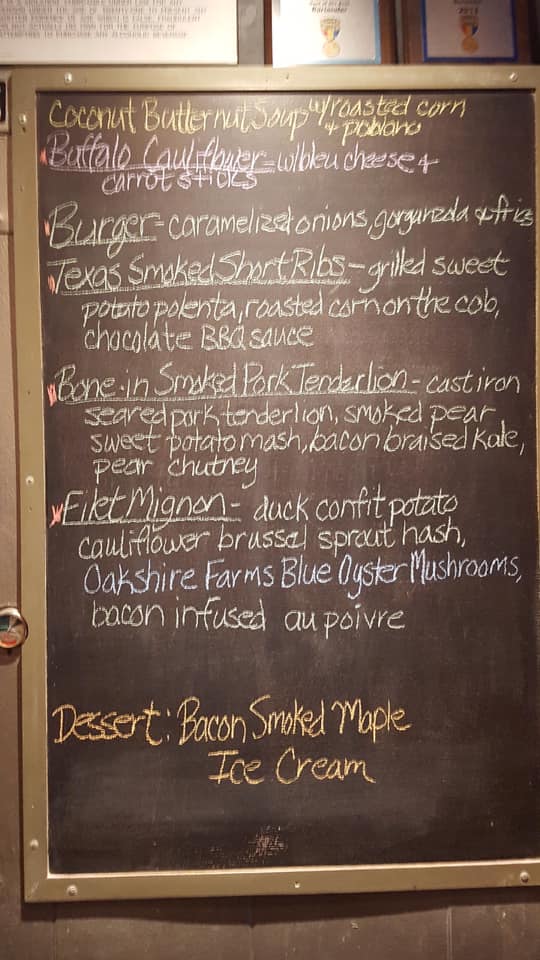 Coconut Butternut Soup w/roasted corn
+ poblano
Buffalo Cauliflower - w/bleu cheese +
carrot sticks
Burger - caramelized onions, gorgunzola + fries
Texas Smoked Short Ribs - grilled sweet
potato polenta, roasted corn on the cob,
chocolate BBQ sauce
Bone-in Smoked Pork Tenderlion - cast iron
seared pork tenderlion, smoked pear
sweet potato mash, bacon braised kale,
pear chutney
Filet Mignon - duck confit potato
cauliflower brussel sprout hash,
Oakshire Farms Blue Oyster Mushrooms,
bacon infused au poivre
Dessert: Bacon Smoked Maple
Ice Cream